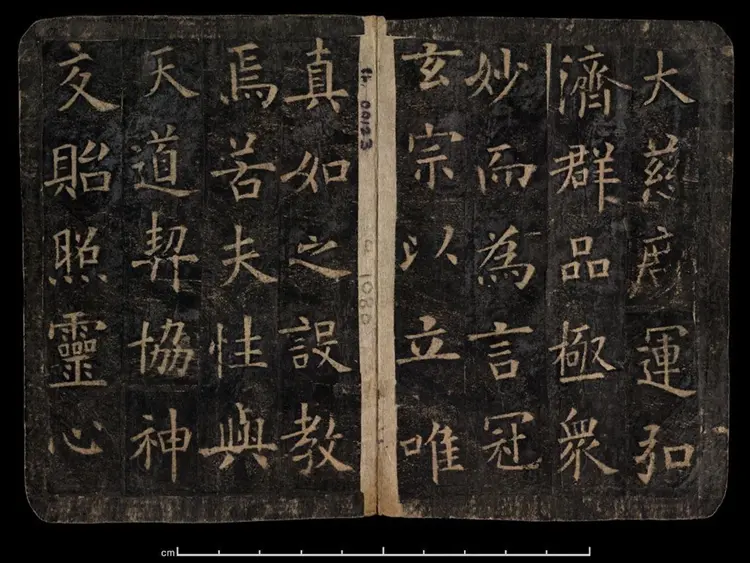 大慈廣運弘
濟群品極眾
妙而為言冠
玄宗以立唯
真如之設教
焉若夫性與
天道契協神
交貽照靈心
ch. 00123
1080
cm